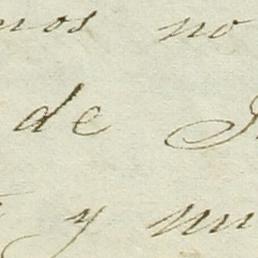 mos no
de
y mu